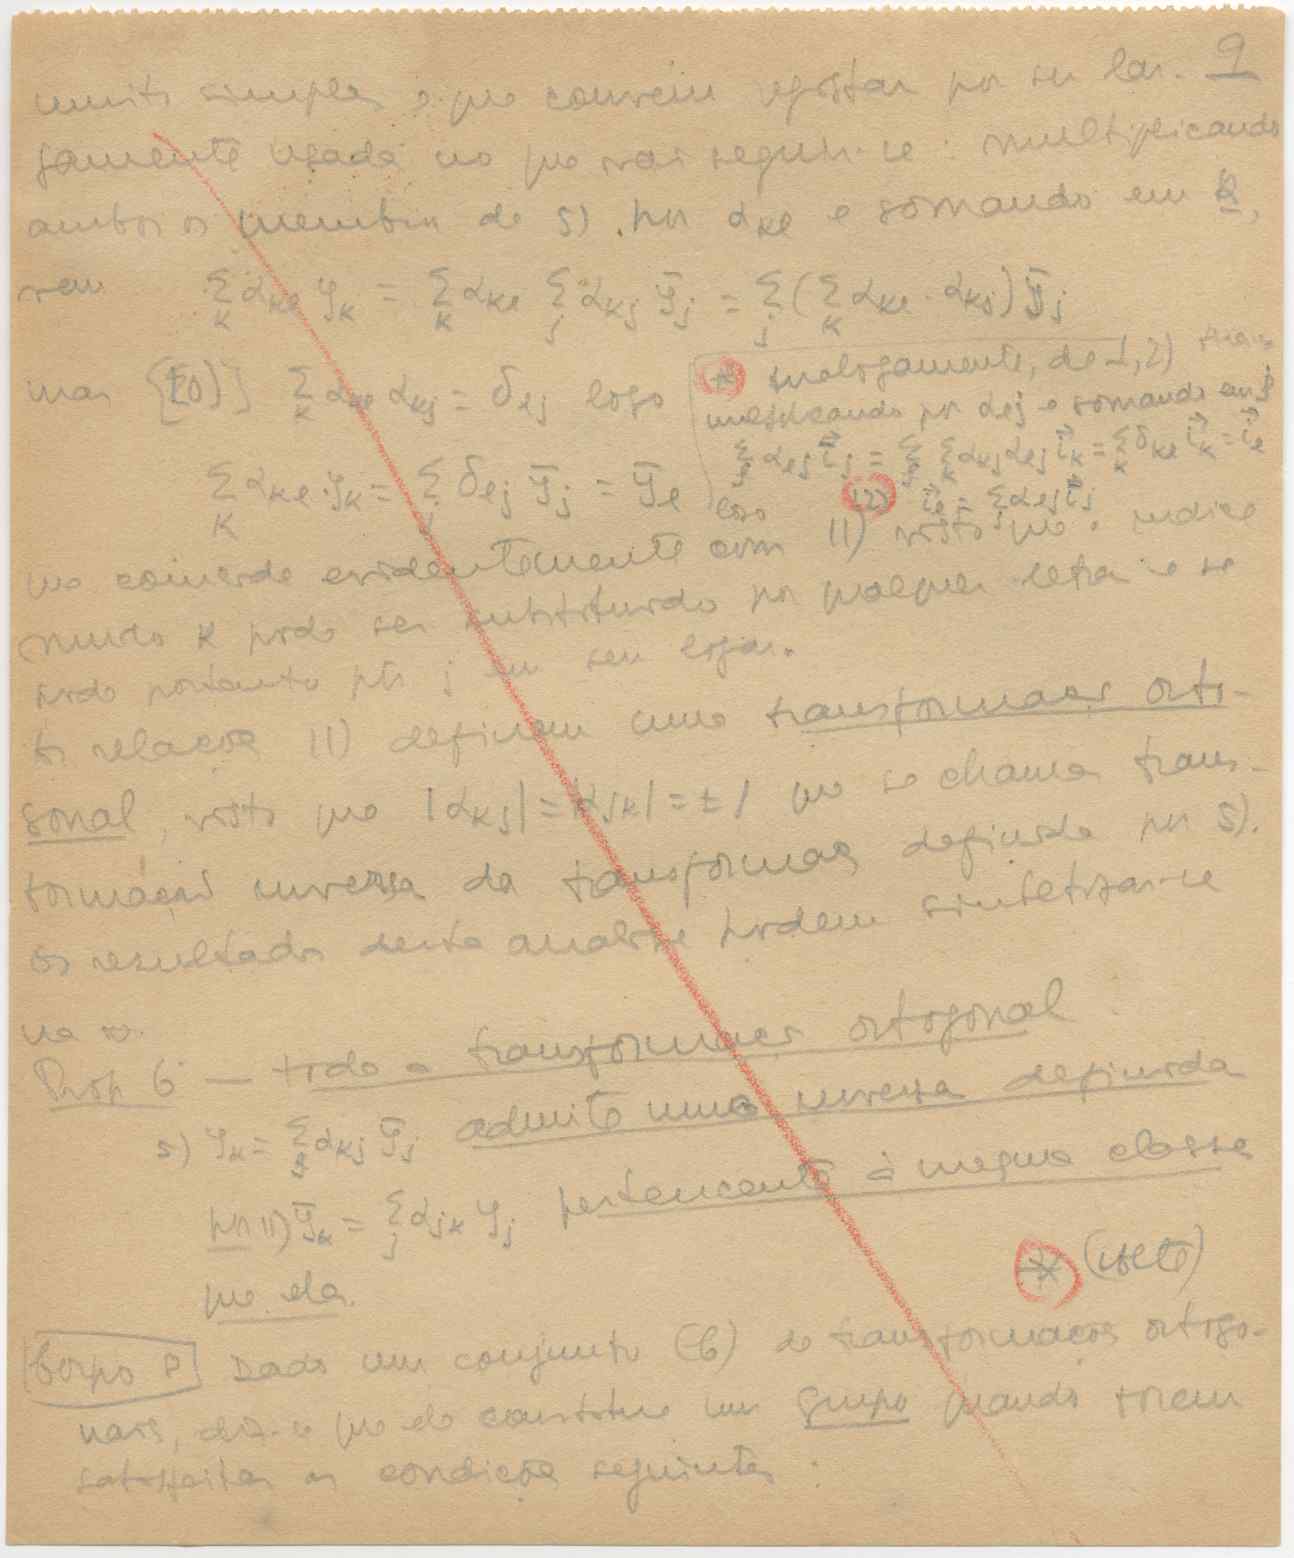 9
muito simples e que convem registar por ser lar-
gamente usada no que vai seguir-se: multiplicando
ambos os membros de 5) por αkl e somando em k,
vem Σk αkl yk = Σk αkl Σj αkj ȳj = Σj (Σk αkl · αkj) ȳj
mas {10)} Σk αkl αkj = δlj logo
Σk αkl · yk = Σj δlj ȳj = ȳl
* Analogamente, de 1,2)
multiplicando por αlj e somando em j
Σj αlj i⃗j = Σj Σk αkj αlj i⃗k = Σk δkl i⃗k = i⃗l
logo 12) i⃗l = Σj αlj i⃗j
que coincide evidentemente com 11) visto que o indice
mudo k pode ser substituido por qualquer letra e se-
ndo portanto por j em seu lugar.
As relações 11) definem uma transformação orto-
gonal, visto que |αkj| = |αjk| = ± 1 que se chama trans-
formação inversa da transformação definida por 5).
Os resultados desta analise podem sintetizar-se
na
Prop 6 — toda a transformação ortogonal
5) yk = Σj αkj ȳj admite uma inversa definida
por 11) ȳk = Σj αjk yj pertencente à mesma classe
que ela.
* (volte)
Grupo Dado um conjunto (G) de transformações ortogo-
nais, diz-se que ele constitue um grupo quando forem
satisfeitas as condições seguintes: